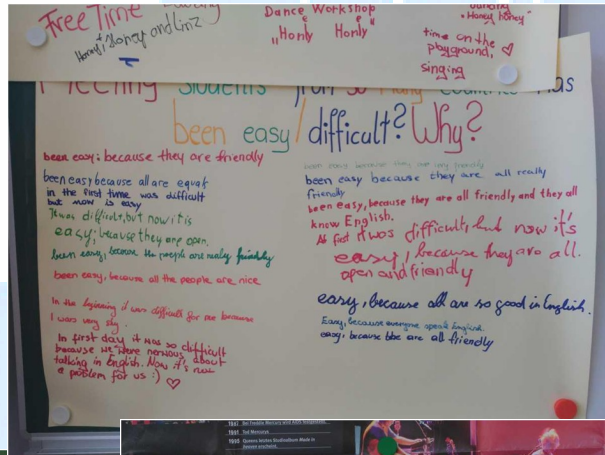 Free Time
Honey, Honey and Linz
Dance Workshop
"Honly Honly"
"Honey honey"
time on the
playground,
singing
Meeting students from so many countries has
been easy / difficult? Why?
been easy; because they are friendly
been easy because all are equal
in the first time was difficult
but now is easy
It was difficult, but now it is
easy; because they are open.
been easy, because the people are really friendly
been easy, because all the people are nice
In the beginning it was difficult for me because
I was very shy.
In first day it was so difficult
because we were nervous about
talking in English. Now it's not
a problem for us :)
been easy because they are very friendly
been easy because they are all really
friendly
been easy, because they are all friendly and they all
know English.
At first it was difficult, but now it's
easy, because they are all.
open and friendly
easy, because all are so good in English.
Easy, because everyone speak English.
easy, because bbc are all friendly
1947 Bei Freddie Mercury wird AIDS
1991 Tod Mercurys
1995 Queens letztes Studioalbum Made in
Heaven erscheint.